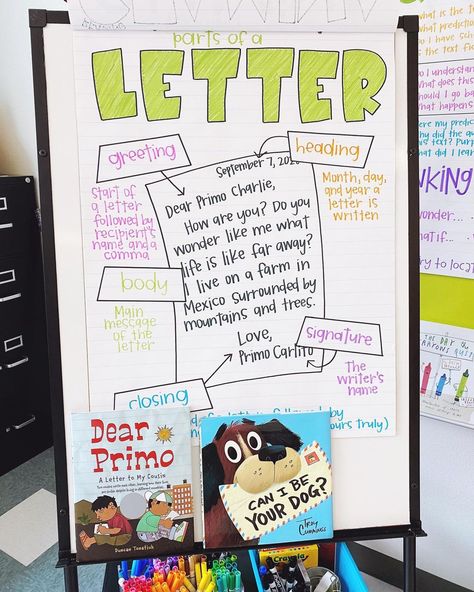 parts of a
LETTER
greeting
Start of
a letter
followed by
recipient's
name and a
comma
heading
Month, day,
and year a
letter is
written
September 7,
Dear Primo Charlie,
How are you? Do you
wonder like me what
life is like far away?
I live on a farm in
Mexico surrounded by
mountains and trees.
Love,
Primo Carlito
body
Main
message of
the letter
signature
The
writer's
name
closing
followed by
yours truly)
Dear
Primo
A Letter to My Cousin
Duncan Tonatiuh
CAN I BE
YOUR DOG?
TROY
CUMMINGS
what is the
to I have
the text
do I understand
what does this
should I go
what happens
were my
predic
did the
text?
did I learn
KING
wonder...
what if...
try to
THE DAY THE
CRAYONS QUIT
Crayola